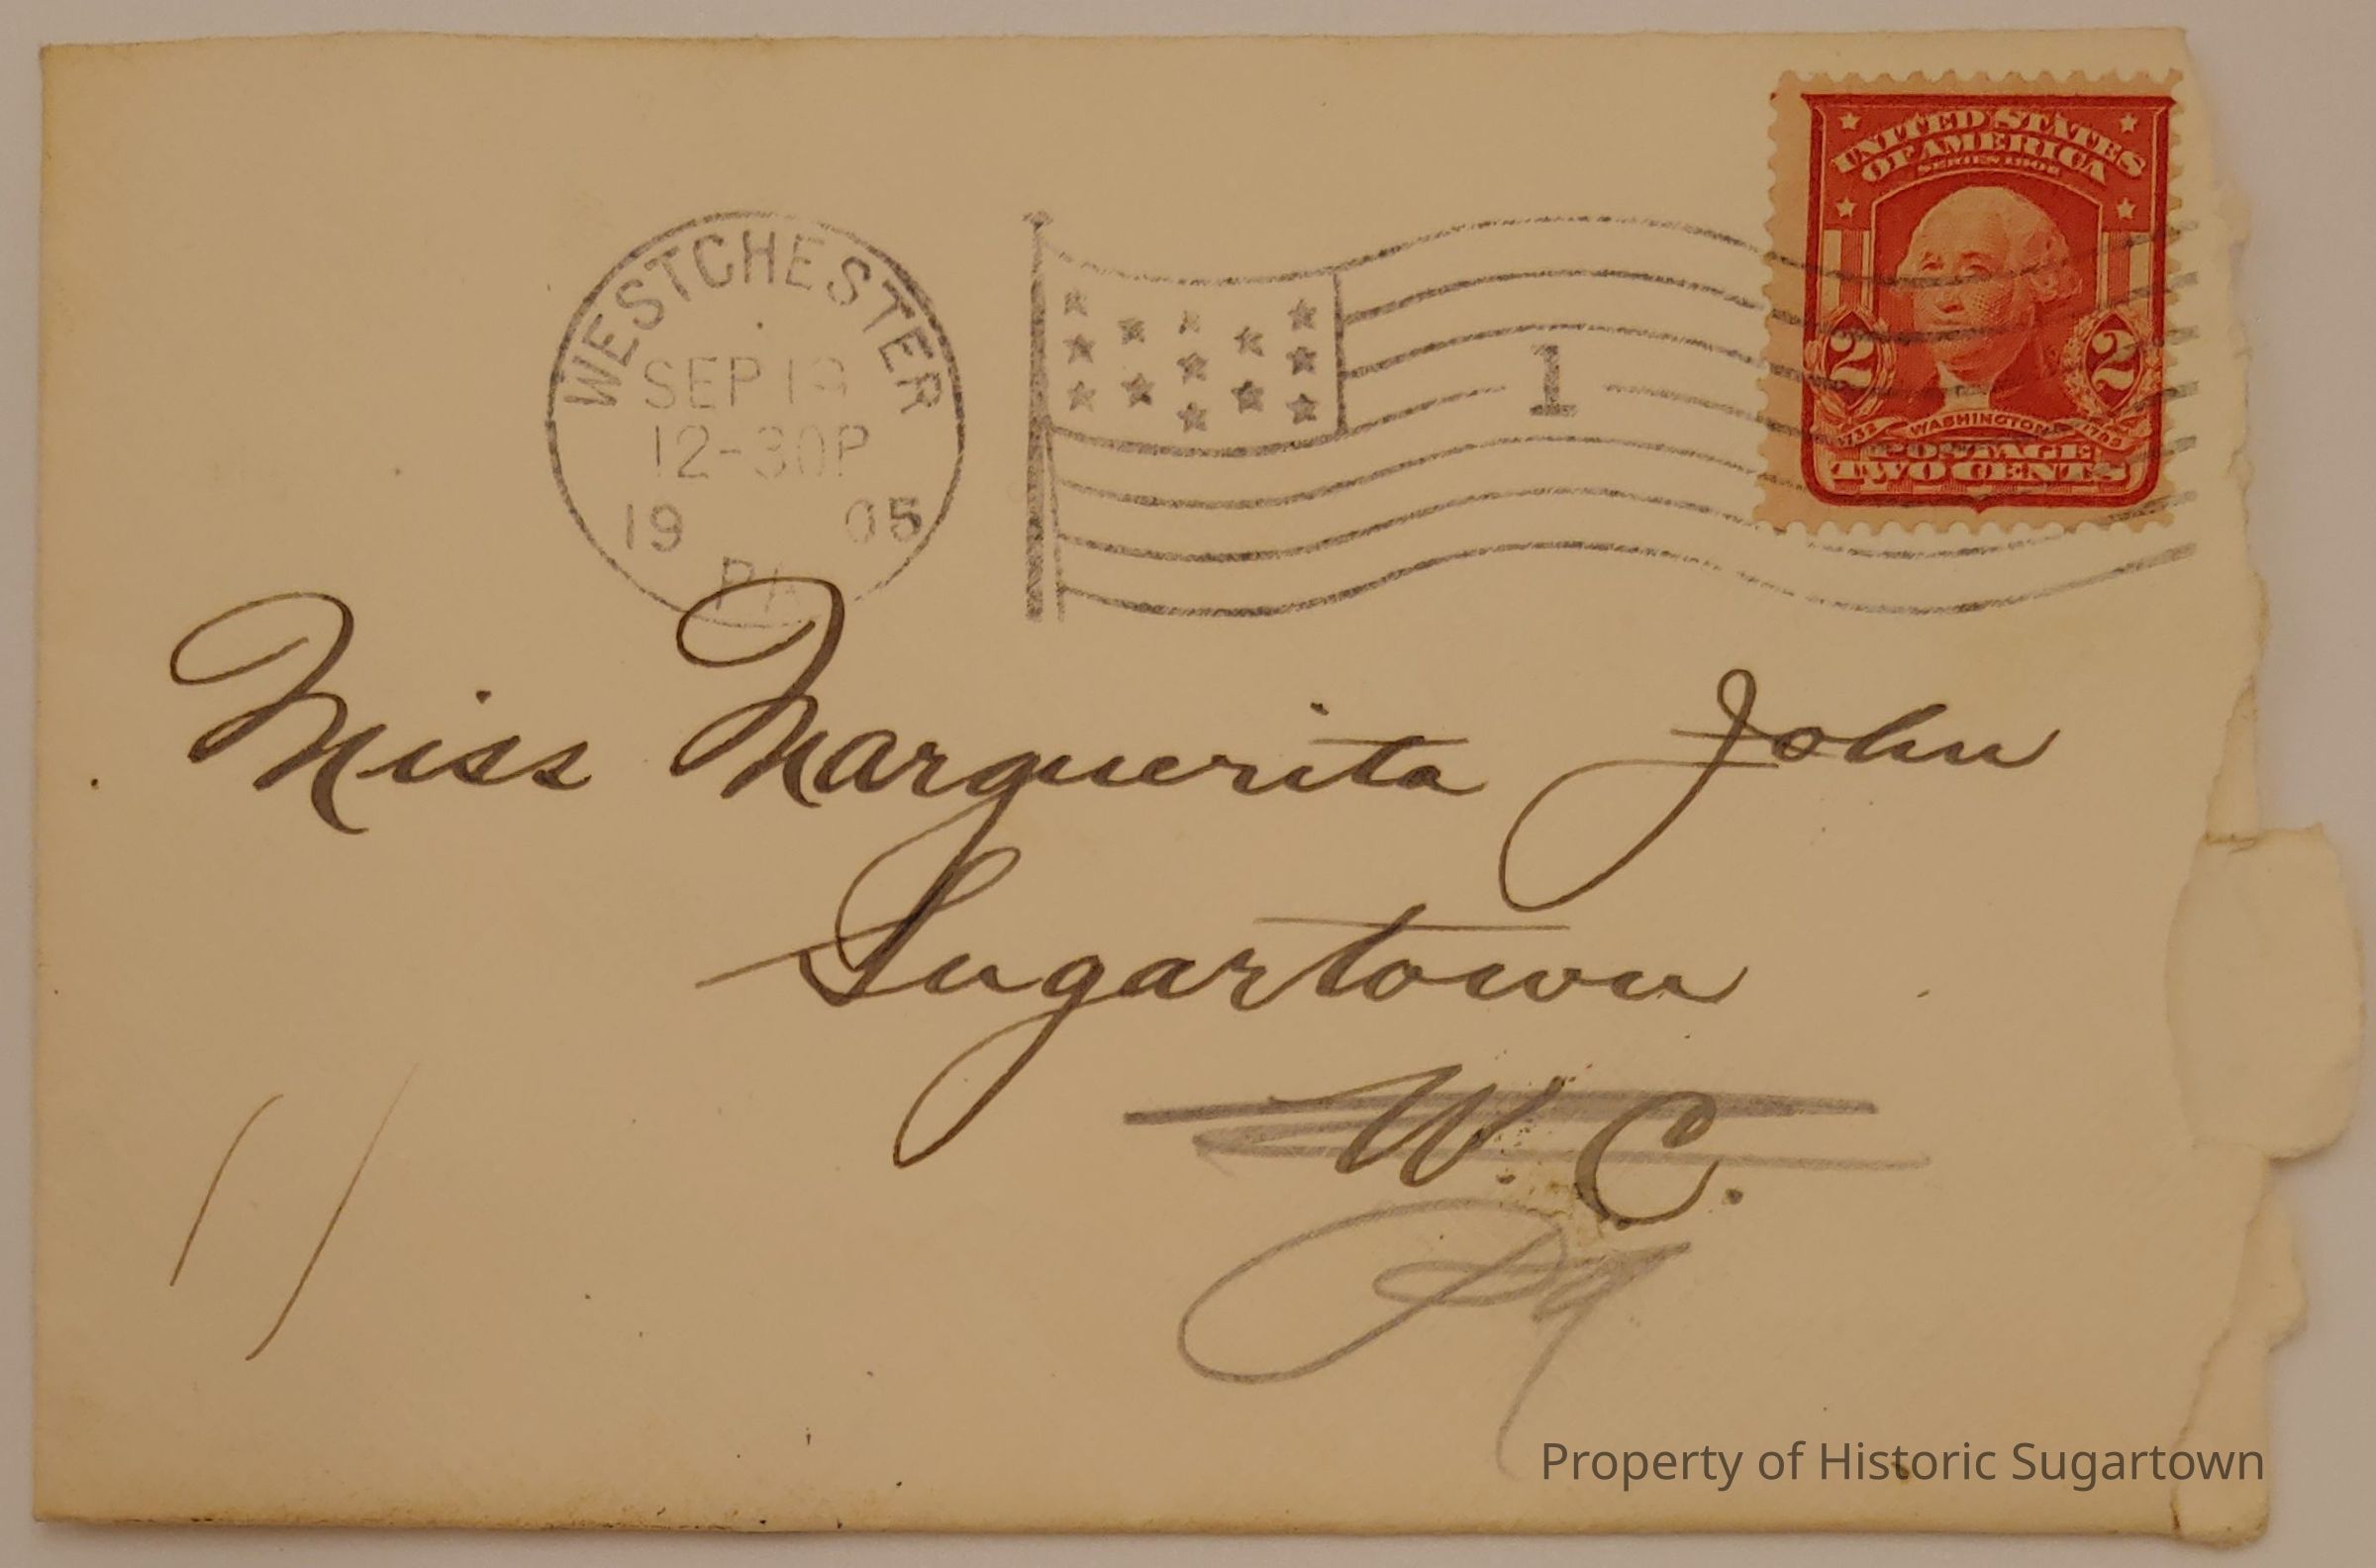 WESTCHESTER
SEP 19
12-30P
19 05
PA
1
UNITED STATES
OF AMERICA
SERIES 1902
2 2
1732 WASHINGTON 1799
POSTAGE
TWO CENTS
Miss Marguerita John
Sugartown
W. C.
Pa
Property of Historic Sugartown